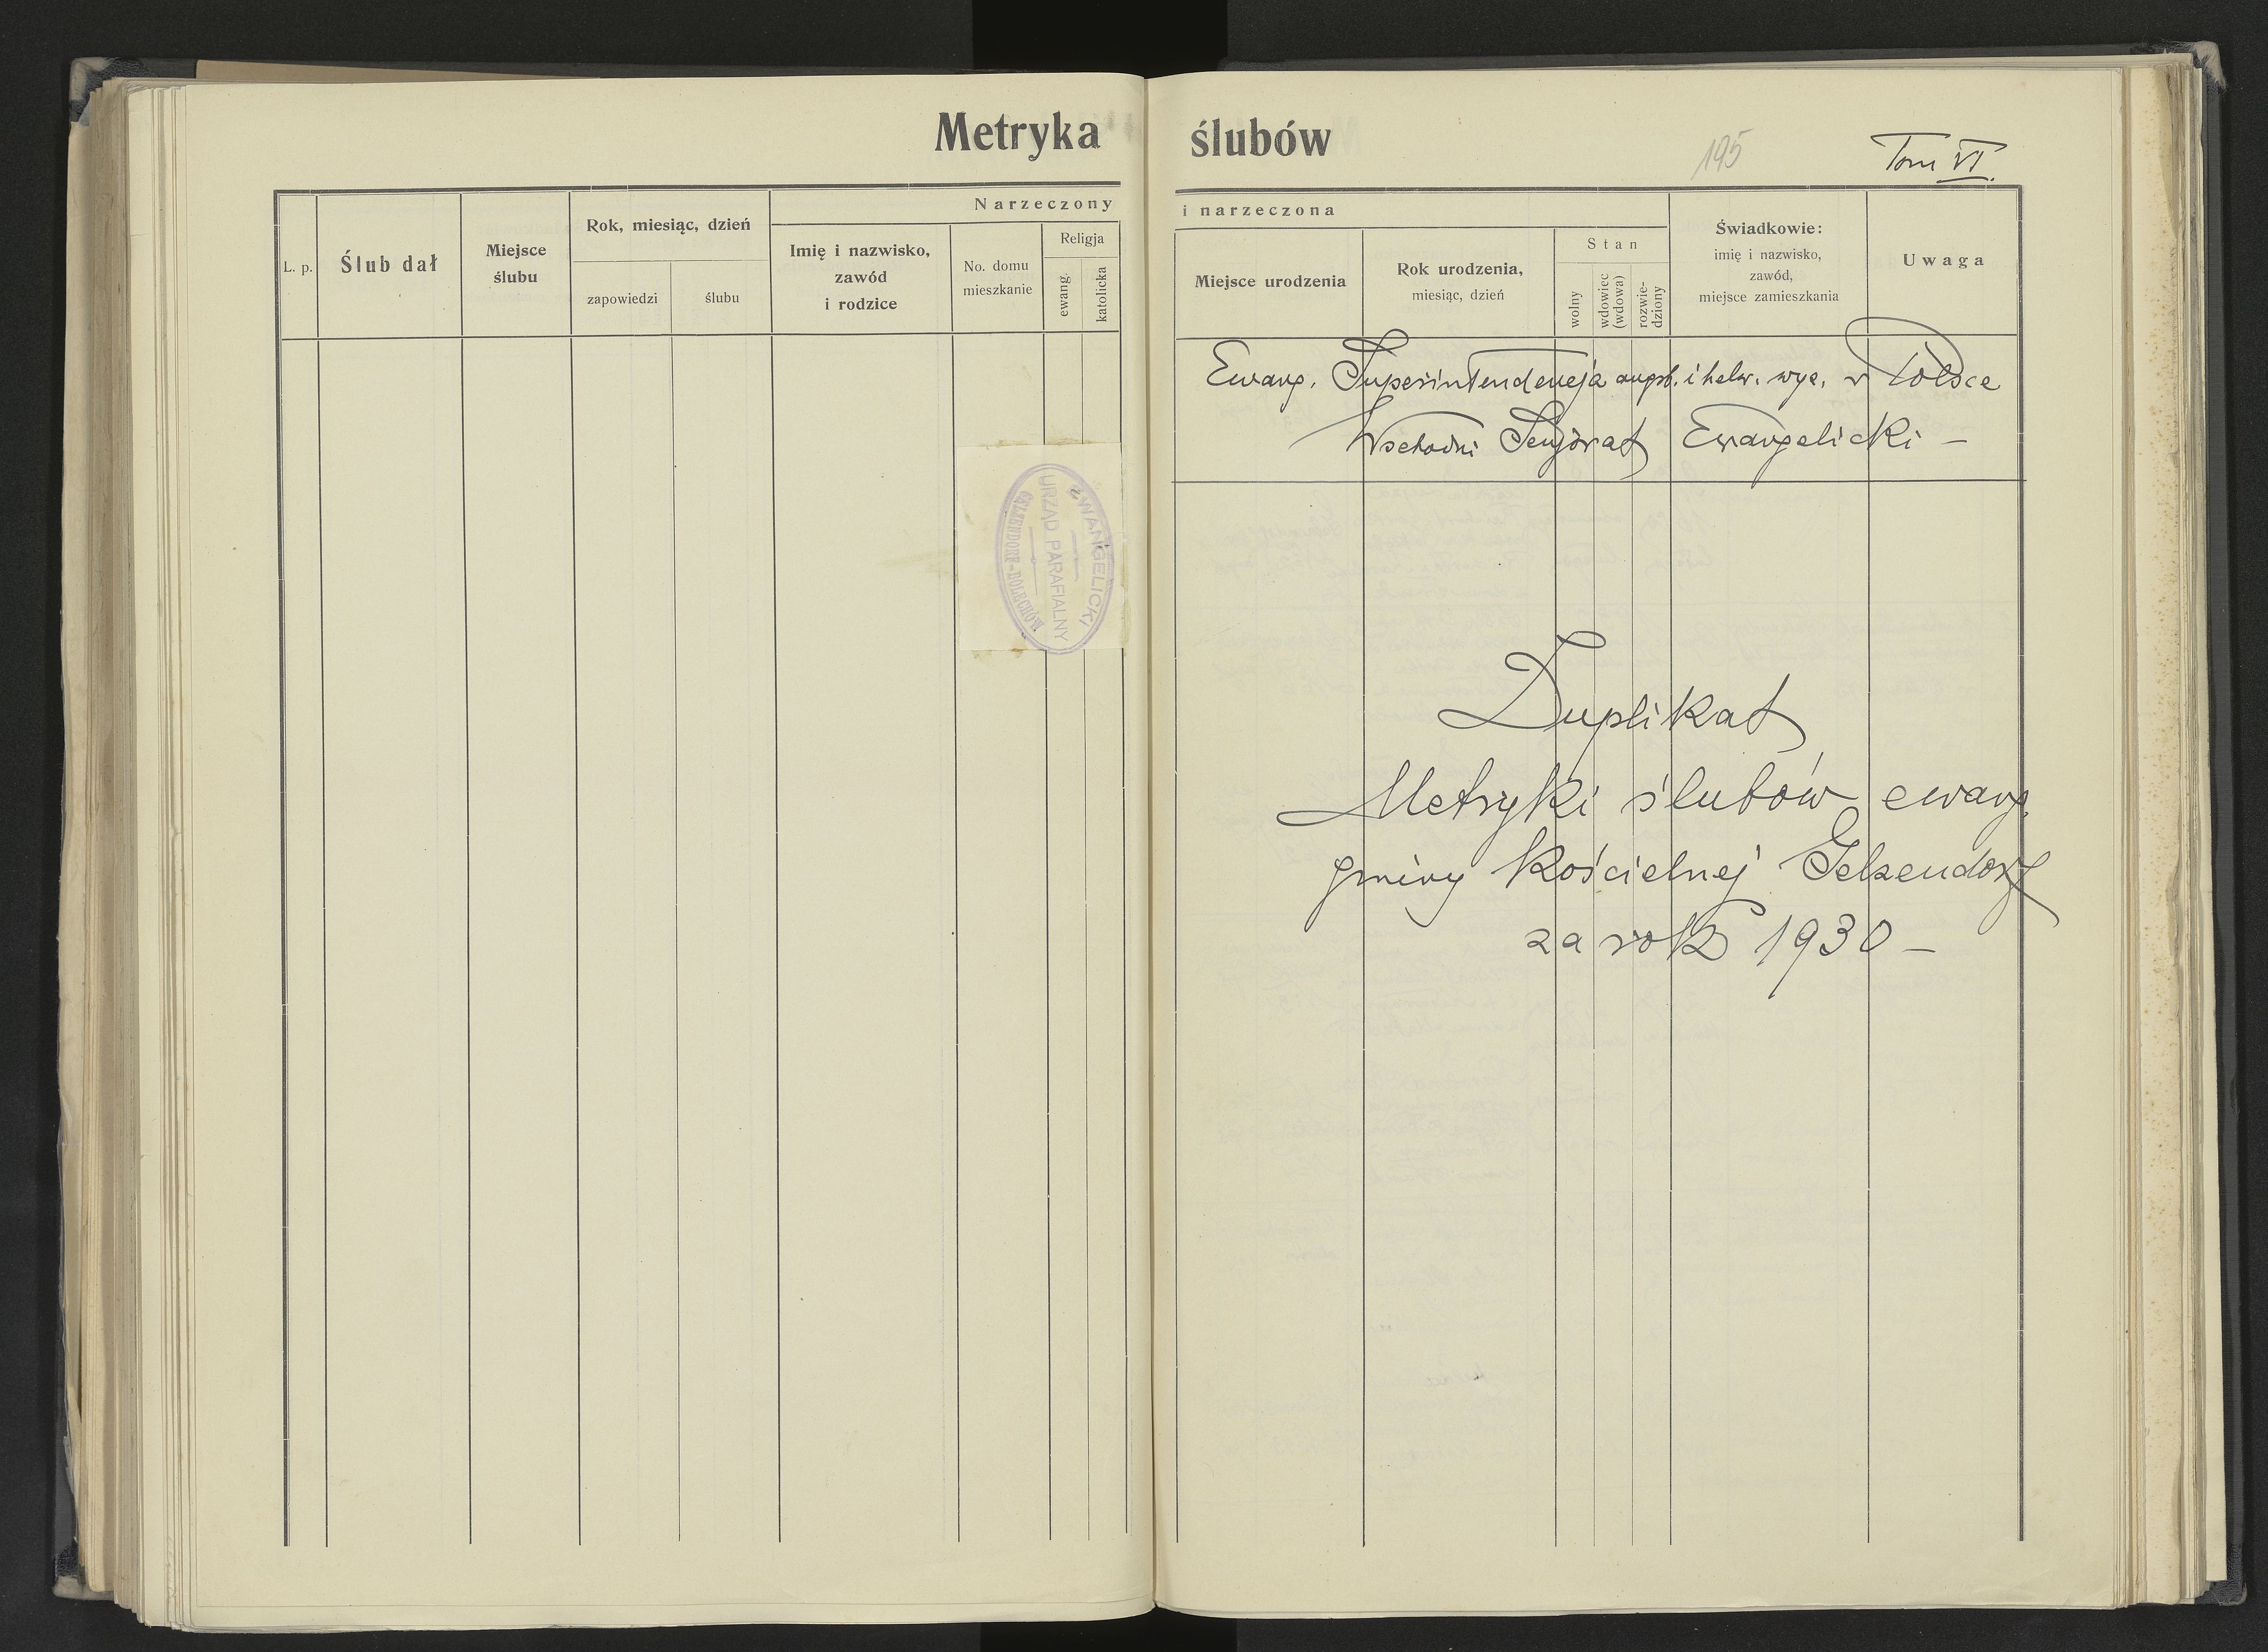 Metryka ślubów
195
Tom VI.
L. p.
Ślub dał
Miejsce
ślubu
Rok, miesiąc, dzień
zapowiedzi
ślubu
Narzeczony
Imię i nazwisko,
zawód
i rodzice
No. domu
mieszkanie
Religja
ewang.
katolicka
i narzeczona
Miejsce urodzenia
Rok urodzenia,
miesiąc, dzień
Stan
wolny
wdowiec
(wdowa)
rozwie-
dziony
Świadkowie:
imię i nazwisko,
zawód,
miejsce zamieszkania
Uwaga
EWANGELICKI
URZĄD PARAFIALNY
GELSENDORF-BOLECHÓW
Ewang. Superintendencja augsb. i helw. wyz. w Polsce
Wschodni Senjorat Ewangelicki –
Duplikat
Metryki ślubów ewang.
gminy Kościelnej Gelsendorf
za rok 1930 –